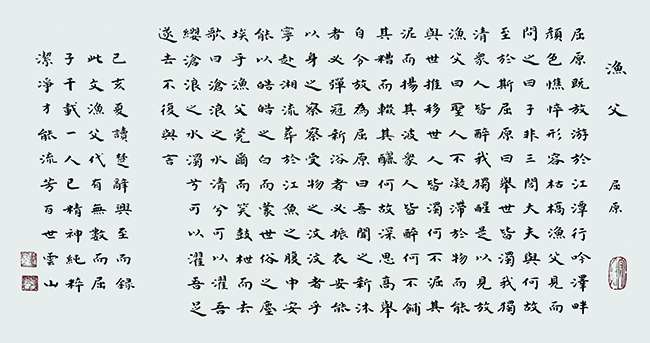 漁父 屈原
屈原既放游於江潭行吟澤畔
顏色憔悴形容枯槁漁父見而
問之曰子非三閭大夫與何故
至於斯屈原曰舉世皆濁我獨
清眾人皆醉我獨醒是以見放
漁父曰聖人不凝滯於物而能
與世推移世人皆濁何不淈其
泥而揚其波眾人皆醉何不餔
其糟而歠其醨何故深思高舉
自令放為屈原曰吾聞之新沐
者必彈冠新浴者必振衣安能
以身之察察受物之汶汶者乎
寧赴湘流葬於江魚之腹中安
能以皓皓之白而蒙世俗之塵
埃乎漁父莞爾而笑鼓枻而去
歌曰滄浪之水清兮可以濯吾
纓滄浪之水濁兮可以濯吾足
遂去不復與言
己亥夏讀楚辭興至而録
此文漁父代有無數而屈
子千載一人已精神純粹
潔淨才能流芳百世雲山